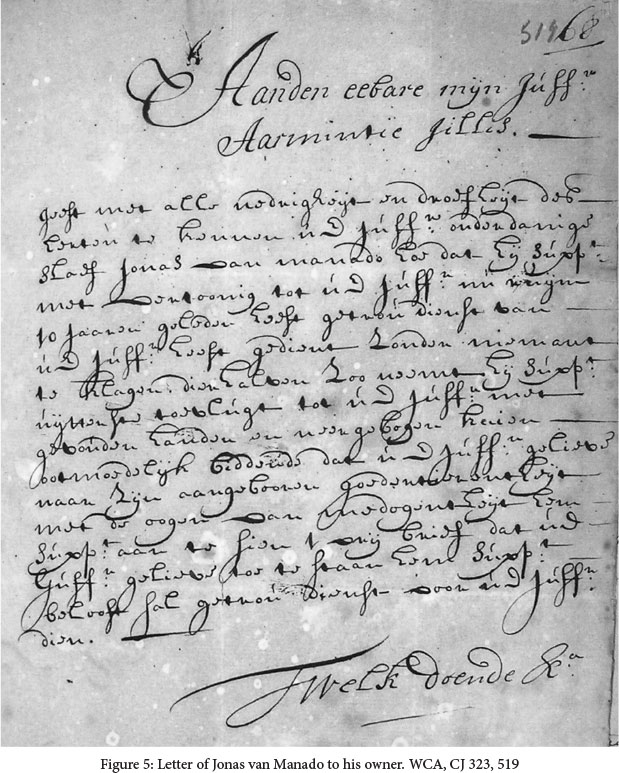 519 68
Aanden eebare mijn Juffr:
Aarmintie Jillis.
geeft met alle nedrigheijt en droefheijt des
herten te kennen Ud Juffr: onderdanige
slaef Jonas van manado hoe dat hij Supt:
met vertoonig tot Ud Juffr: nu ruijm
10 jaaren geleden heeft getrou dienst van
Ud Juffr: heeft gedient zonden niemant
te klagen. dierhalven zoo neemt hij Supt:
uijtterste toevlugt tot Ud Juffr: met
gevouden handen en neergebogen knien
ootmoedelijk biddende dat Ud Juffr: gelieve
naar zijn aangebooren goedertierentheijt
met de oogen van medogentheijt hem
Supt: aan te sien 1 vrij brief dat Ud
Juffr: gelieve toe te staan hem Supt:
belooft sal getrou dienst voor Ud Juffr:
dien.
T welk doende &a
Figure 5: Letter of Jonas van Manado to his owner. WCA, CJ 323, 519